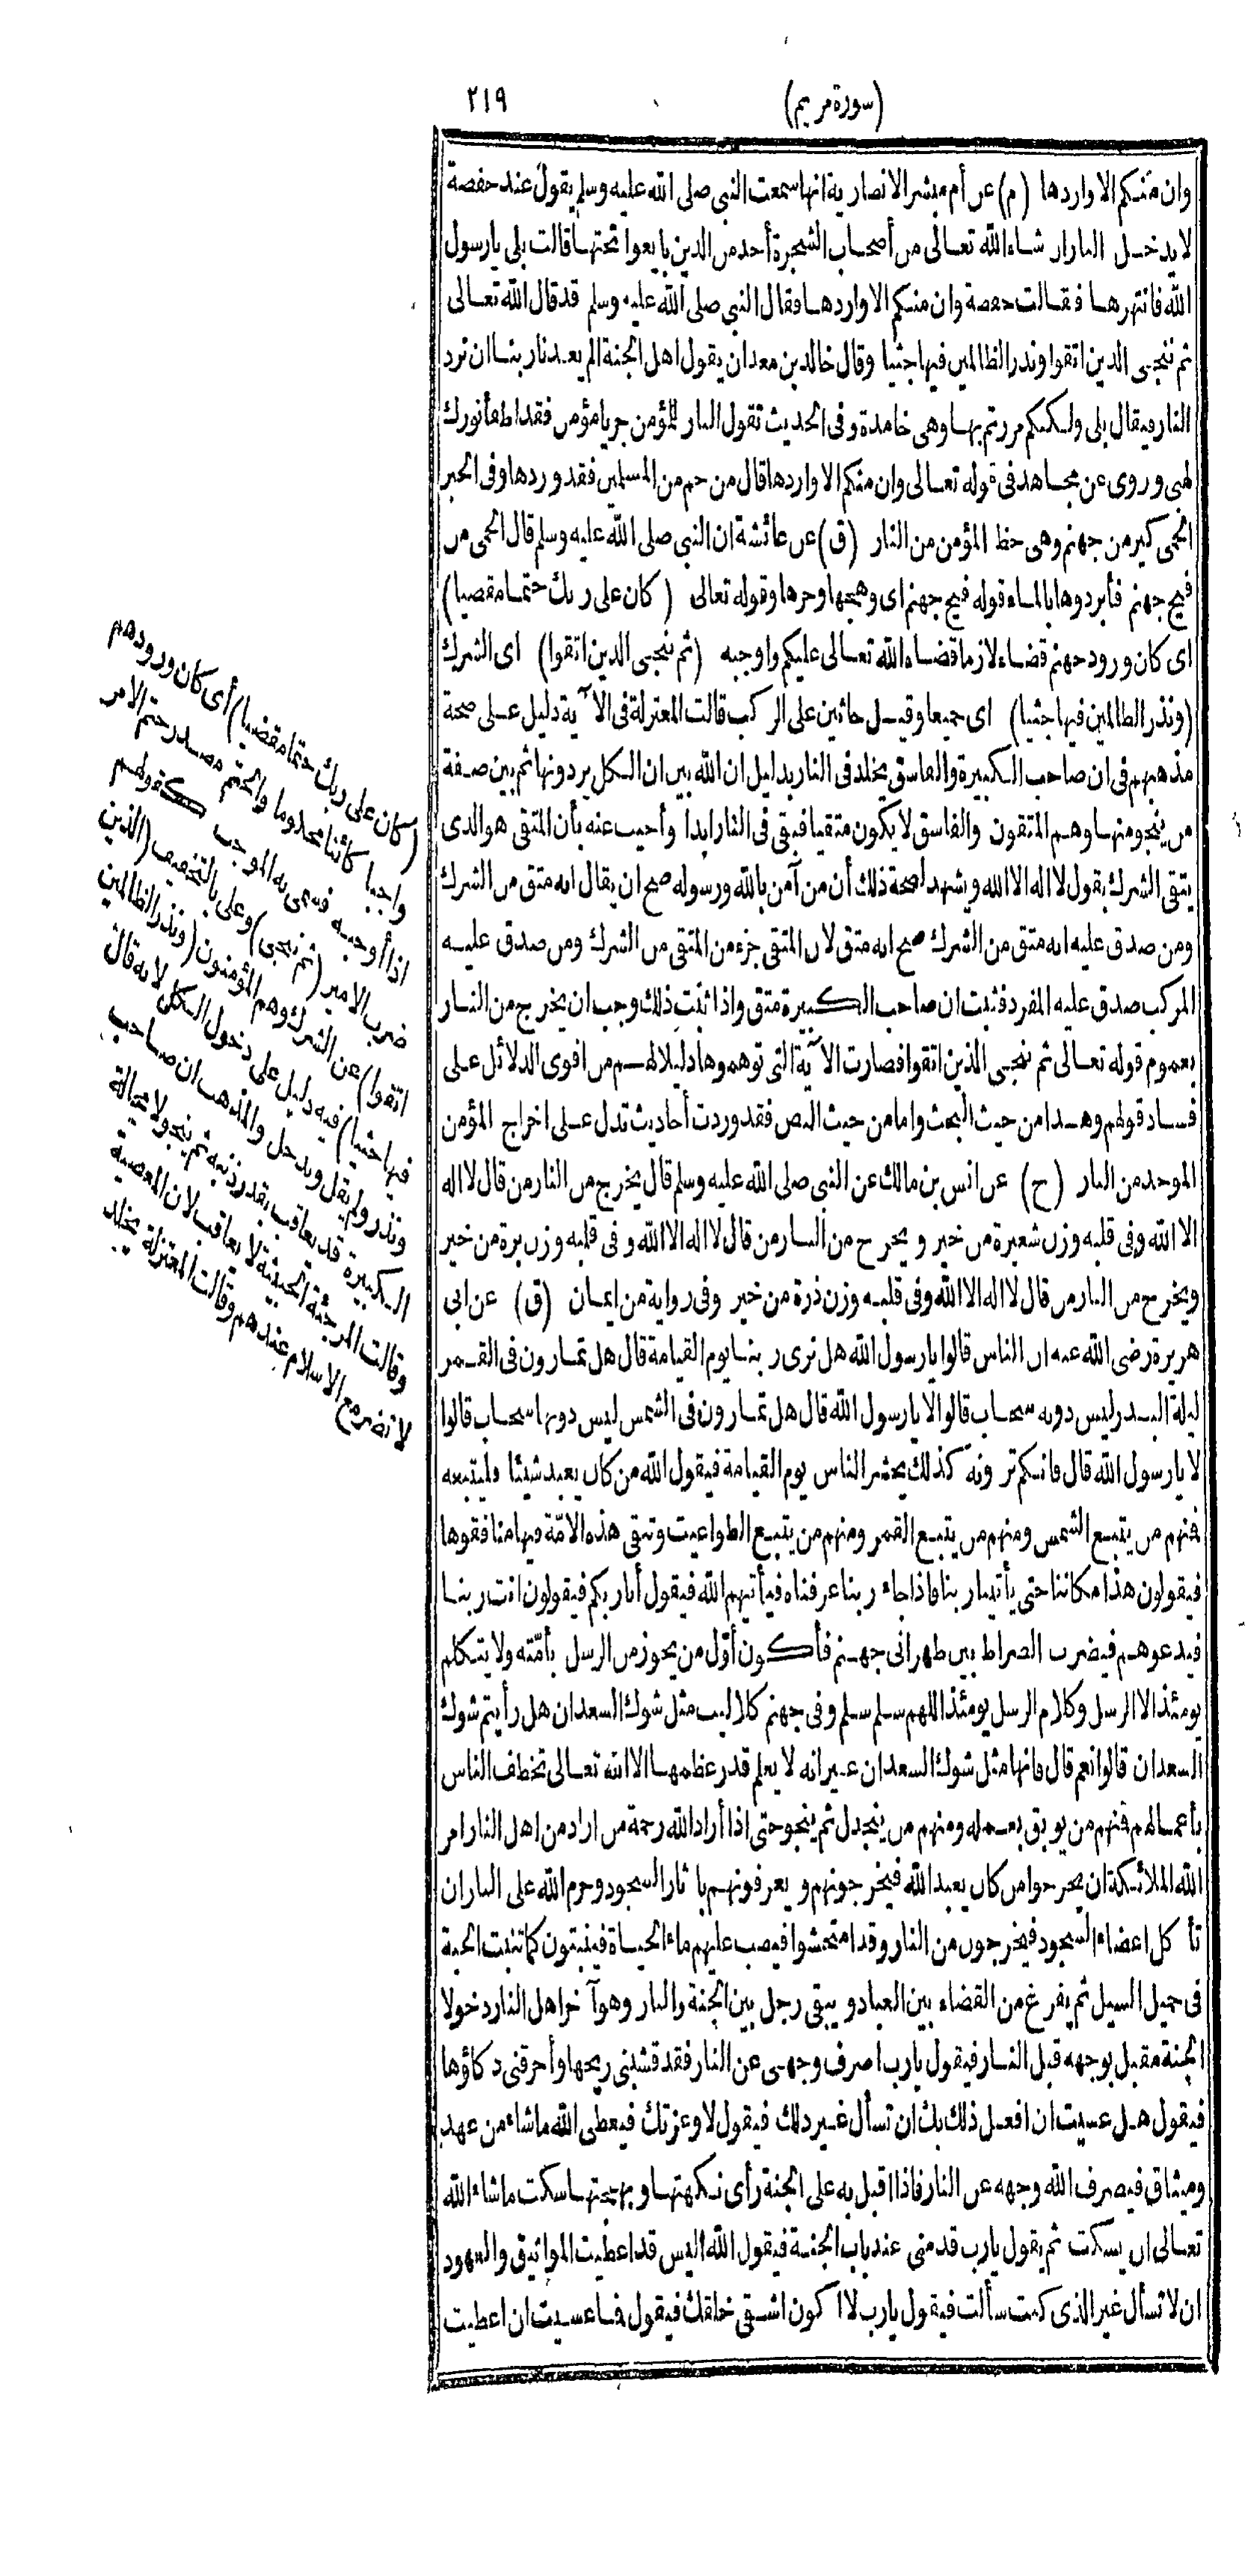 (سورة مريم)
٢١٩
وان منكم الا واردها (م) عن أم مبشر الانصارية انها سمعت النبي صلى الله عليه وسلم يقول عند حفصة
لا يدخل النار ان شاء الله تعالى من أصحاب الشجرة أحد من الذين بايعوا تحتها قالت بلى يا رسول
الله فانتهرها فقالت حفصة وان منكم الا واردها فقال النبي صلى الله عليه وسلم قد قال الله تعالى
ثم ننجى الذين اتقوا ونذر الظالمين فيها جثيا وقال خالد بن معدان يقول اهل الجنة الم يعدنا ربنا ان نرد
النار فيقال بلى ولكنكم مررتم بها وهى خامدة وفى الحديث تقول النار للمؤمن جز يا مؤمن فقد اطفأ نورك
لهبى وروى عن مجاهد فى قوله تعالى وان منكم الا واردها قال من حم من المسلمين فقد وردها وفى الخبر
الحمى كير من جهنم وهى حظ المؤمن من النار (ق) عن عائشة ان النبي صلى الله عليه وسلم قال الحمى من
فيح جهنم فأبردوها بالماء قوله فيح جهنم اى وهجها وحرها وقوله تعالى (كان على ربك حتما مقضيا)
اى كان ورود جهنم قضاء لازما قضاه الله تعالى عليكم واوجبه (ثم ننجى الذين اتقوا) اى الشرك
(ونذر الظالمين فيها جثيا) اى جميعا وقيل جاثين على الركب قالت المعتزلة فى الآية دليل على صحة
مذهبهم فى ان صاحب الكبيرة والفاسق يخلد فى النار بدليل ان الله بين ان الكل يردونها ثم بين صفة
من ينجو منها وهم المتقون والفاسق لا يكون متقيا فيبقى فى النار ابدا وأجيب عنه بأن المتقى هو الذى
يتقى الشرك بقول لا اله الا الله ويشهد لصحة ذلك أن من آمن بالله ورسوله صح ان يقال انه متق من الشرك
ومن صدق عليه انه متق من الشرك صح انه متق لان المتقى جزء من المتقى من الشرك ومن صدق عليه
المركب صدق عليه المفرد فثبت ان صاحب الكبيرة متق واذا ثبت ذلك وجب ان يخرج من النار
بعموم قوله تعالى ثم ننجى الذين اتقوا فصارت الآية التى توهموها دليلا لهم من اقوى الدلائل على
فساد قولهم وهذا من حيث البحث واما من حيث النص فقد وردت أحاديث تدل على اخراج المؤمن
الموحد من النار (خ) عن انس بن مالك عن النبي صلى الله عليه وسلم قال يخرج من النار من قال لا اله
الا الله وفى قلبه وزن شعيرة من خير ويخرج من النار من قال لا اله الا الله وفى قلبه وزن برة من خير
ويخرج من النار من قال لا اله الا الله وفى قلبه وزن ذرة من خير وفى رواية من ايمان (ق) عن ابى
هريرة رضى الله عنه ان الناس قالوا يا رسول الله هل نرى ربنا يوم القيامة قال هل تمارون فى القمر
ليلة البدر ليس دونه سحاب قالوا لا يا رسول الله قال هل تمارون فى الشمس ليس دونها سحاب قالوا
لا يا رسول الله قال فانكم ترونه كذلك يحشر الناس يوم القيامة فيقول الله من كان يعبد شيئا فليتبعه
فمنهم من يتبع الشمس ومنهم من يتبع القمر ومنهم من يتبع الطواغيت وتبقى هذه الامّة فيها منافقوها
فيقولون هذا مكاننا حتى يأتينا ربنا فاذا جاء ربنا عرفناه فيأتيهم الله فيقول أنا ربكم فيقولون انت ربنا
فيدعوهم فيضرب الصراط بين ظهرانى جهنم فأكون أوّل من يجوز من الرسل بأمّته ولا يتكلم
يومئذ الا الرسل وكلام الرسل يومئذ اللهم سلم سلم وفى جهنم كلاليب مثل شوك السعدان هل رأيتم شوك
السعدان قالوا نعم قال فانها مثل شوك السعدان غير انه لا يعلم قدر عظمها الا الله تعالى تخطف الناس
بأعمالهم فمنهم من يوبق بعمله ومنهم من ينجدل ثم ينجو حتى اذا أراد الله رحمة من اراد من اهل النار امر
الله الملائكة ان يخرجوا من كان يعبد الله فيخرجونهم ويعرفونهم باثار السجود وحرم الله على النار ان
تأكل اعضاء السجود فيخرجون من النار وقد امتحشوا فيصب عليهم ماء الحياة فينبتون كما تنبت الحبة
فى حميل السيل ثم يفرغ من القضاء بين العباد ويبقى رجل بين الجنة والنار وهو آخر اهل النار دخولا
الجنة مقبل بوجهه قبل النار فيقول يا رب اصرف وجهى عن النار فقد قشبنى ريحها وأحرقنى ذكاؤها
فيقول هل عسيت ان افعل ذلك بك ان تسأل غير ذلك فيقول لا وعزتك فيعطى الله ما شاء من عهد
وميثاق فيصرف الله وجهه عن النار فاذا اقبل به على الجنة رأى نكهتها وبهجتها سكت ما شاء الله
تعالى ان يسكت ثم يقول يا رب قدمنى عند باب الجنة فيقول الله اليس قد اعطيت المواثيق والعهود
ان لا تسأل غير الذى كنت سألت فيقول يا رب لا اكون اشقى خلقك فيقول فما عسيت ان اعطيت
(كان على ربك حتما مقضيا) أى كان ورودهم
واجبا كائنا محتوما والحتم مصدر حتم الامر
اذا أوجبه فسمى به الموجب كقولهم
ضرب الامير (ثم ننجى) وعلى بالتخفيف (الذين
اتقوا) عن الشرك وهم المؤمنون (ونذر الظالمين
فيها جثيا) فيه دليل على دخول الكل لانه قال
ونذر ولم يقل وندخل والمذهب ان صاحب
الكبيرة قد يعاقب بقدر ذنبه ثم ينجو لا محالة
وقالت المرجئة الخبيثة لا يعاقب لان المعصية
لا تضر مع الاسلام عندهم وقالت المعتزلة يخلد